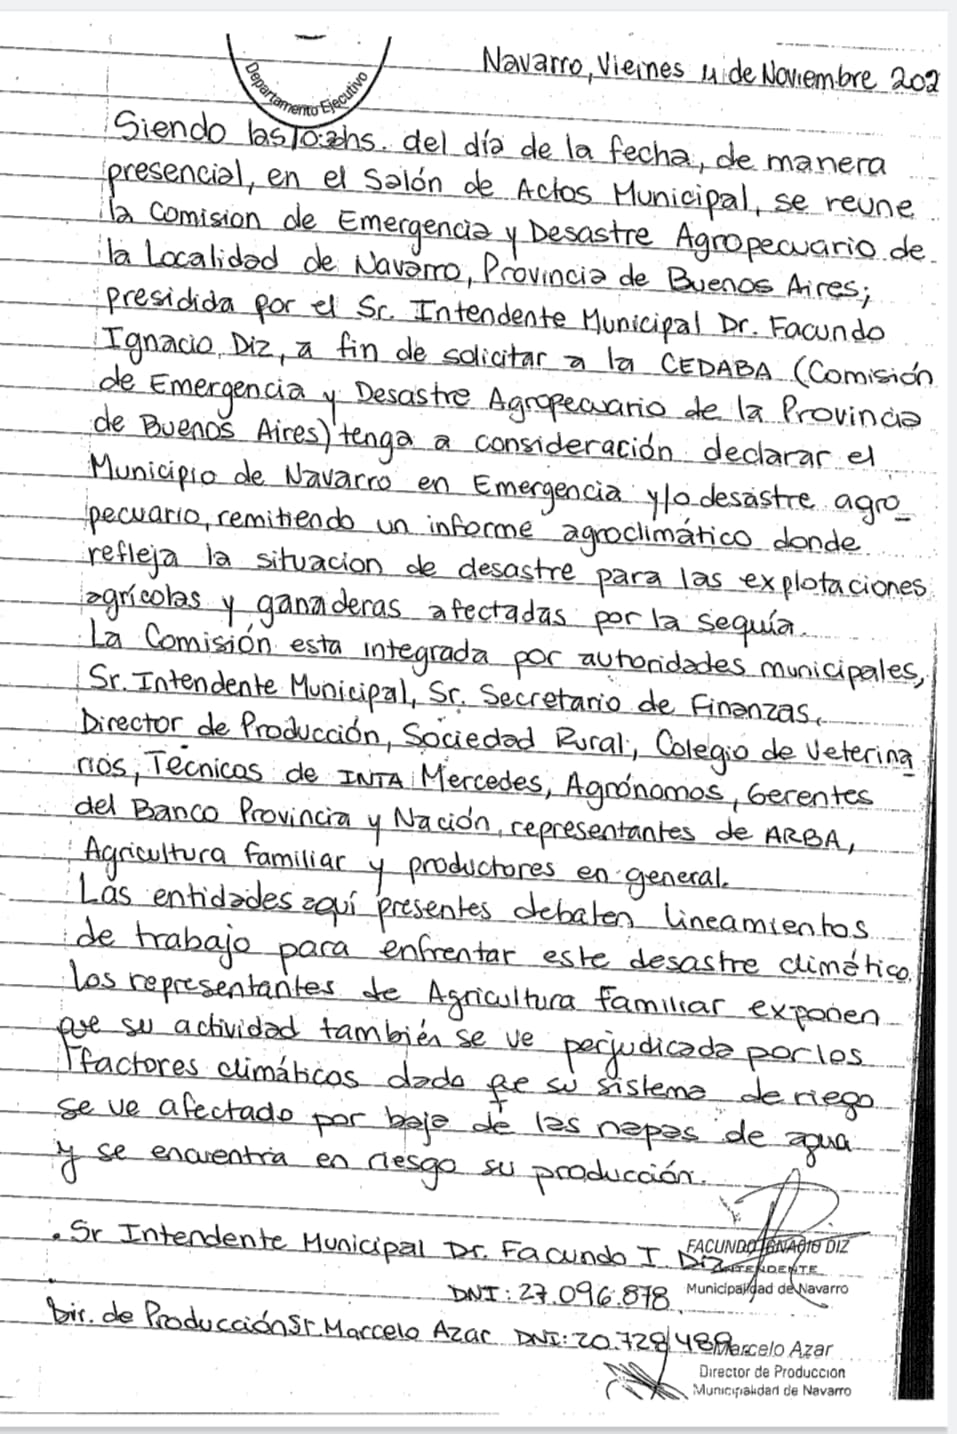 Departamento Ejecutivo
Navarro, Viernes 11 de Noviembre 202
Siendo las 10:
hs. del día de la fecha, de manera
presencial, en el Salón de Actos Municipal, se reune
la Comision de Emergencia y Desastre Agropecuario de
la Localidad de Navarro, Provincia de Buenos Aires;
presidida por el Sr. Intendente Municipal Dr. Facundo
Ignacio Diz, a fin de solicitar a la CEDABA (Comisión
de Emergencia y Desastre Agropecuario de la Provincia
de Buenos Aires) tenga a consideración declarar el
Municipio de Navarro en Emergencia y/o desastre agro_
pecuario, remitiendo un informe agroclimático donde
refleja la situacion de desastre para las explotaciones
agrícolas y ganaderas afectadas por la sequía.
La Comisión esta integrada por autoridades municipales,
Sr. Intendente Municipal, Sr. Secretario de Finanzas,
Director de Producción, Sociedad Rural, Colegio de Veterina_
rios, Técnicos de INTA Mercedes, Agrónomos, Gerentes
del Banco Provincia y Nación, representantes de ARBA,
Agricultura familiar y productores en general.
Las entidades aquí presentes debaten lineamientos
de trabajo para enfrentar este desastre climático,
los representantes de Agricultura familiar exponen
que su actividad también se ve perjudicada por los
factores climáticos dado que su sistema de riego
se ve afectado por baja de las napas de agua
y se encuentra en riesgo su producción.
. Sr Intendente Municipal Dr. Facundo I. Diz
FACUNDO IGNACIO DIZ
INTENDENTE
DNI: 27.096.878
Municipalidad de Navarro
. Dir. de Producción Sr. Marcelo Azar DNI: 20.728.489
Marcelo Azar
Director de Produccion
Municipalidad de Navarro